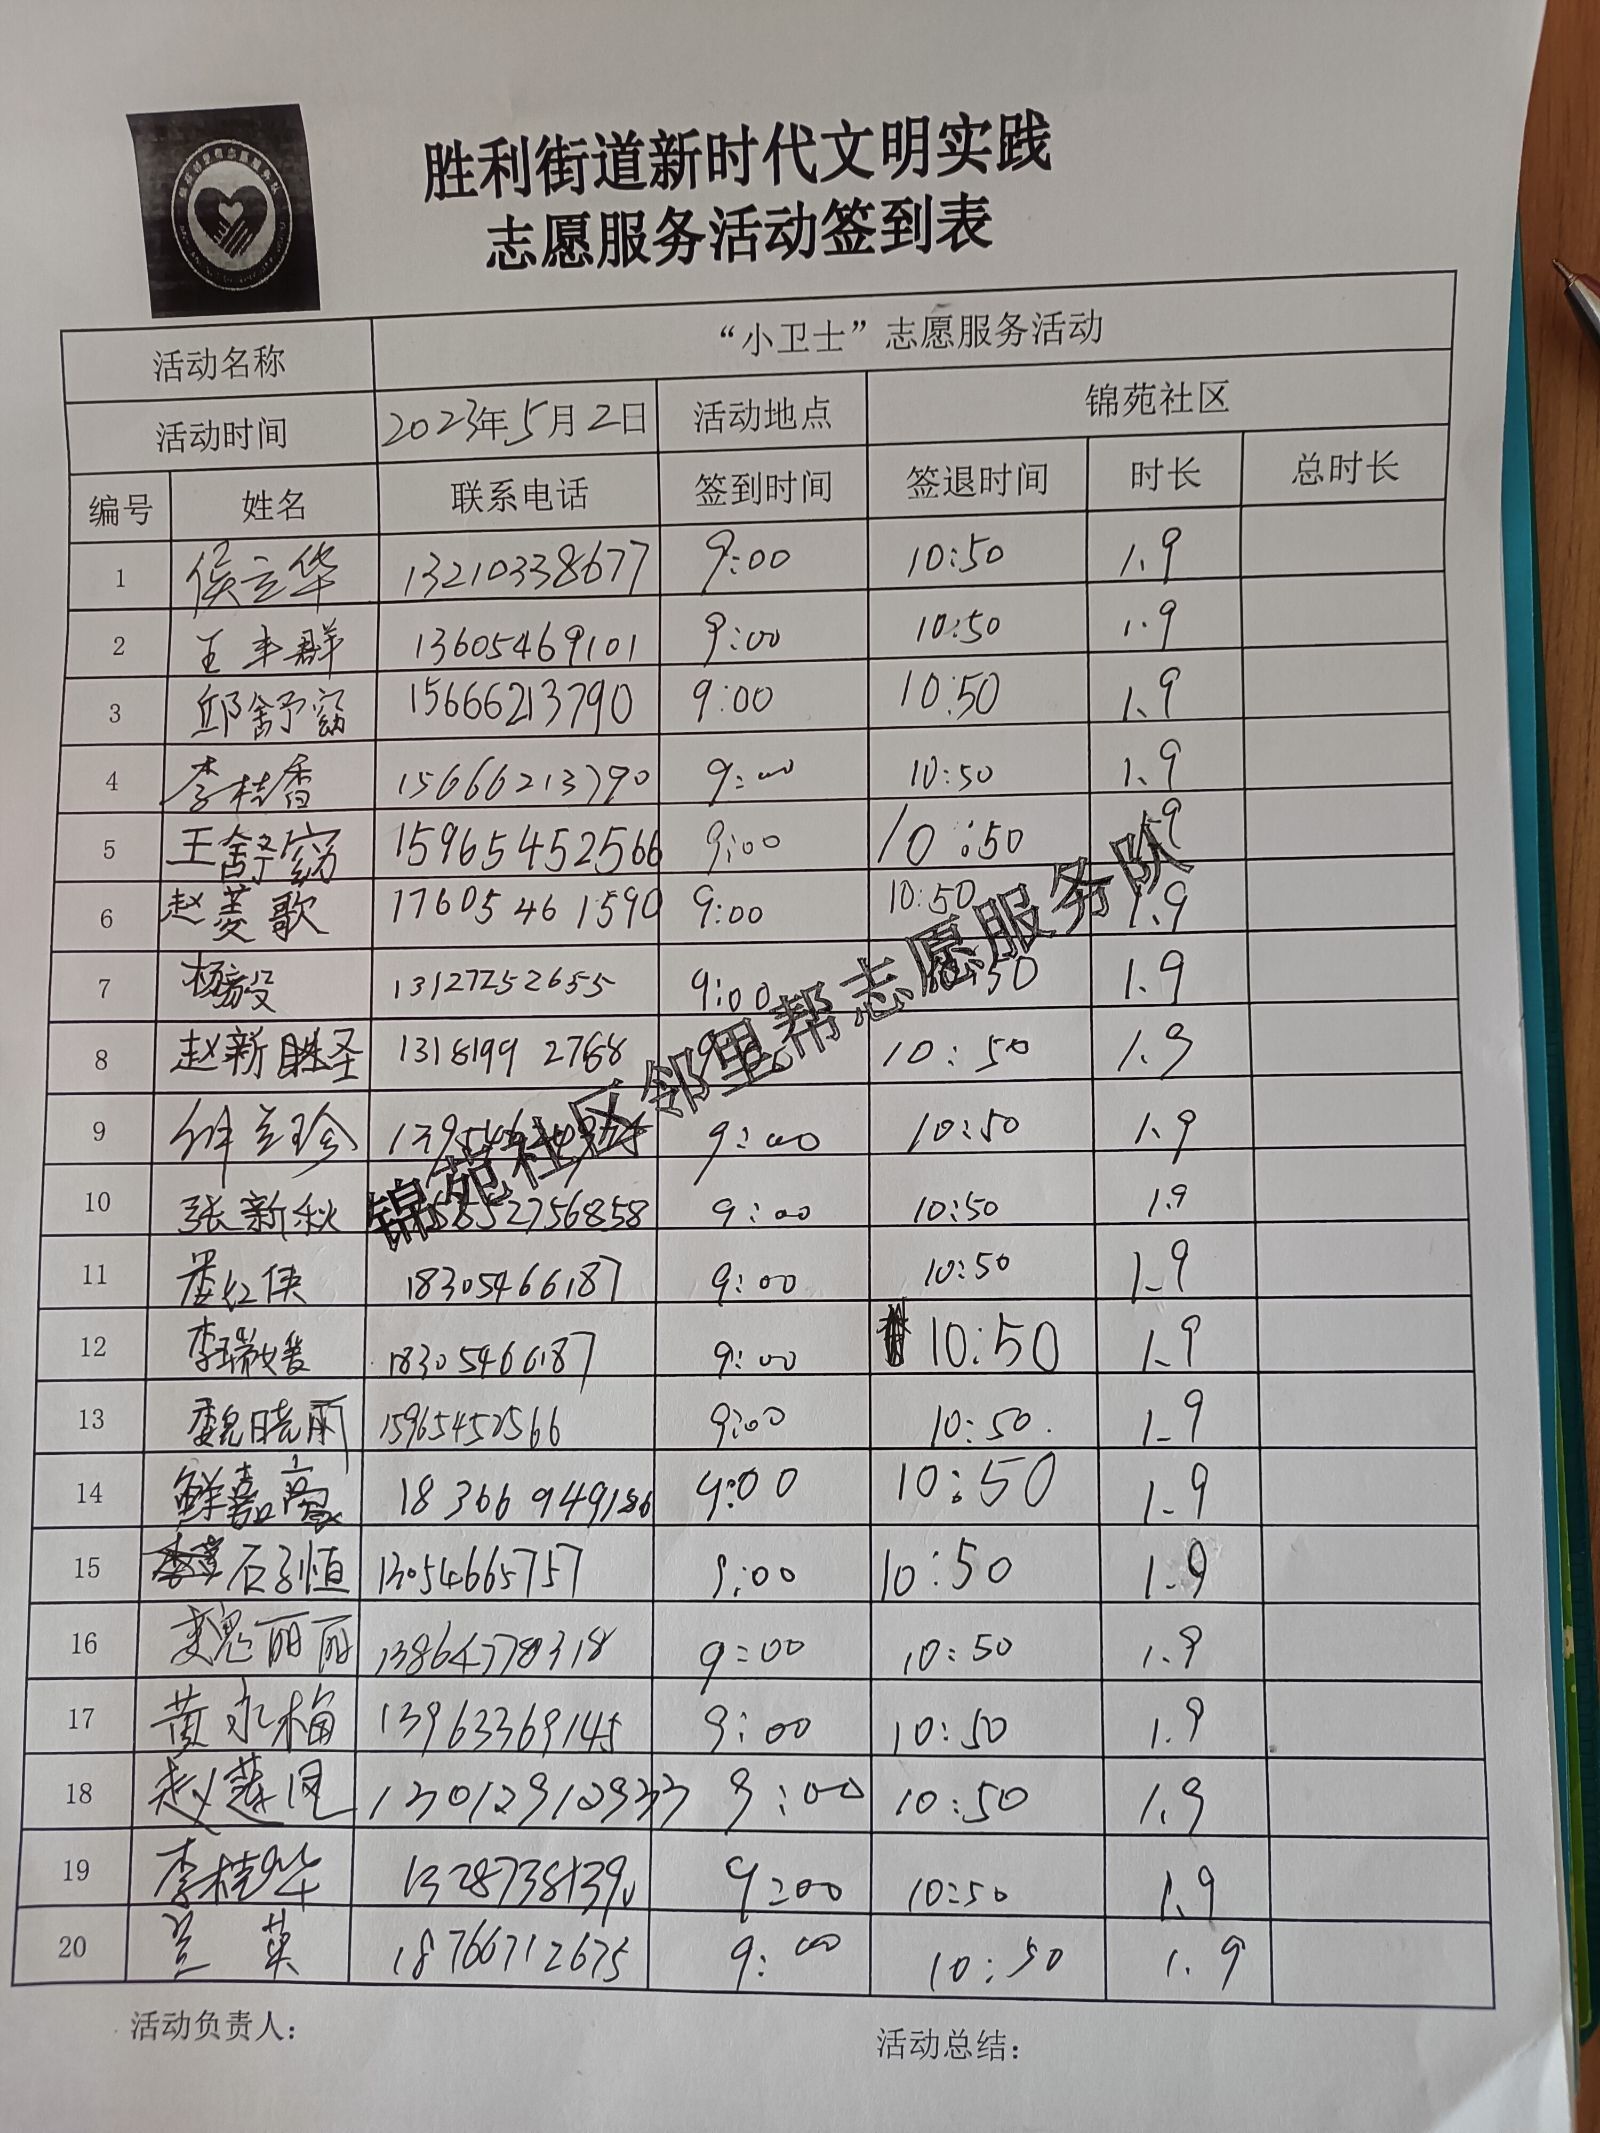 胜利街道新时代文明实践
志愿服务活动签到表
活动名称 “小卫士”志愿服务活动
活动时间 2023年5月2日 活动地点 锦苑社区
编号 姓名 联系电话 签到时间 签退时间 时长 总时长
1 侯立华 13210338677 9:00 10:50 1.9
2 王丰群 13605469101 9:00 10:50 1.9
3 邱舒窈 15666213790 9:00 10:50 1.9
4 李桂香 15666213790 9:00 10:50 1.9
5 王舒窈 15965452566 9:00 10:50 1.9
6 赵菱歌 17605461590 9:00 10:50 1.9
7 杨毅 13127252655 9:00 10:50 1.9
8 赵新胜圣 13181992768 9:00 10:50 1.9
9 9:00 10:50 1.9
10 张新秋 9:00 10:50 1.9
11 18305466187 9:00 10:50 1.9
12 李瑞媛 18305466187 9:00 10:50 1.9
13 魏晓丽 15965452566 9:00 10:50 1.9
14 鲜嘉豪 9:00 10:50 1.9
15 石子恒 13054665757 9:00 10:50 1.9
16 魏丽丽 13864778318 9:00 10:50 1.9
17 黄永梅 13963369145 9:00 10:50 1.9
18 9:00 10:50 1.9
19 李桂华 9:00 10:50 1.9
20 兰英 18766712675 9:00 10:50 1.9
锦苑社区邻里帮志愿服务队
活动负责人：
活动总结：